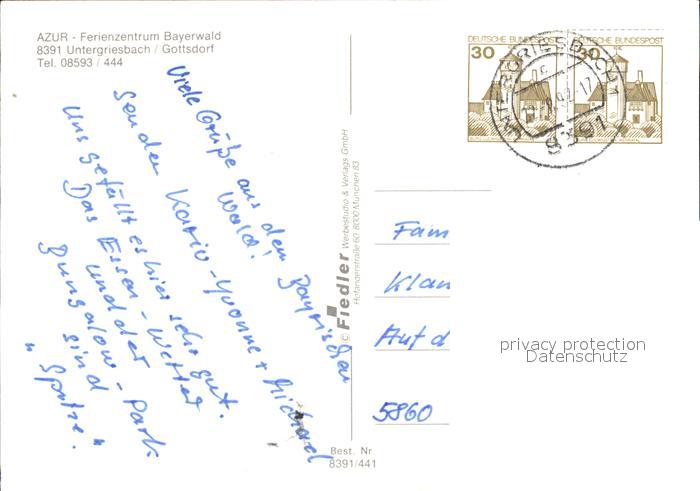 AZUR - Ferienzentrum Bayerwald
8391 Untergriesbach / Gottsdorf
Tel. 08593 / 444
DEUTSCHE BUNDESPOST
30
DEUTSCHE BUNDESPOST
30
8391
Viele Grüße aus dem Bayrischen
Wald!
senden Karin-Yvonne + Michael
Uns gefällt es hier sehr gut.
Das Essen - Wetter
und der Park
Bungalow-
sind
"Spitze."
© Fiedler Werbestudio & Verlags GmbH
Hofangerstraße 60, 8000 München 83
Fam
Klau
Auf d
5860
privacy protection
Datenschutz
Best. Nr.
8391/441